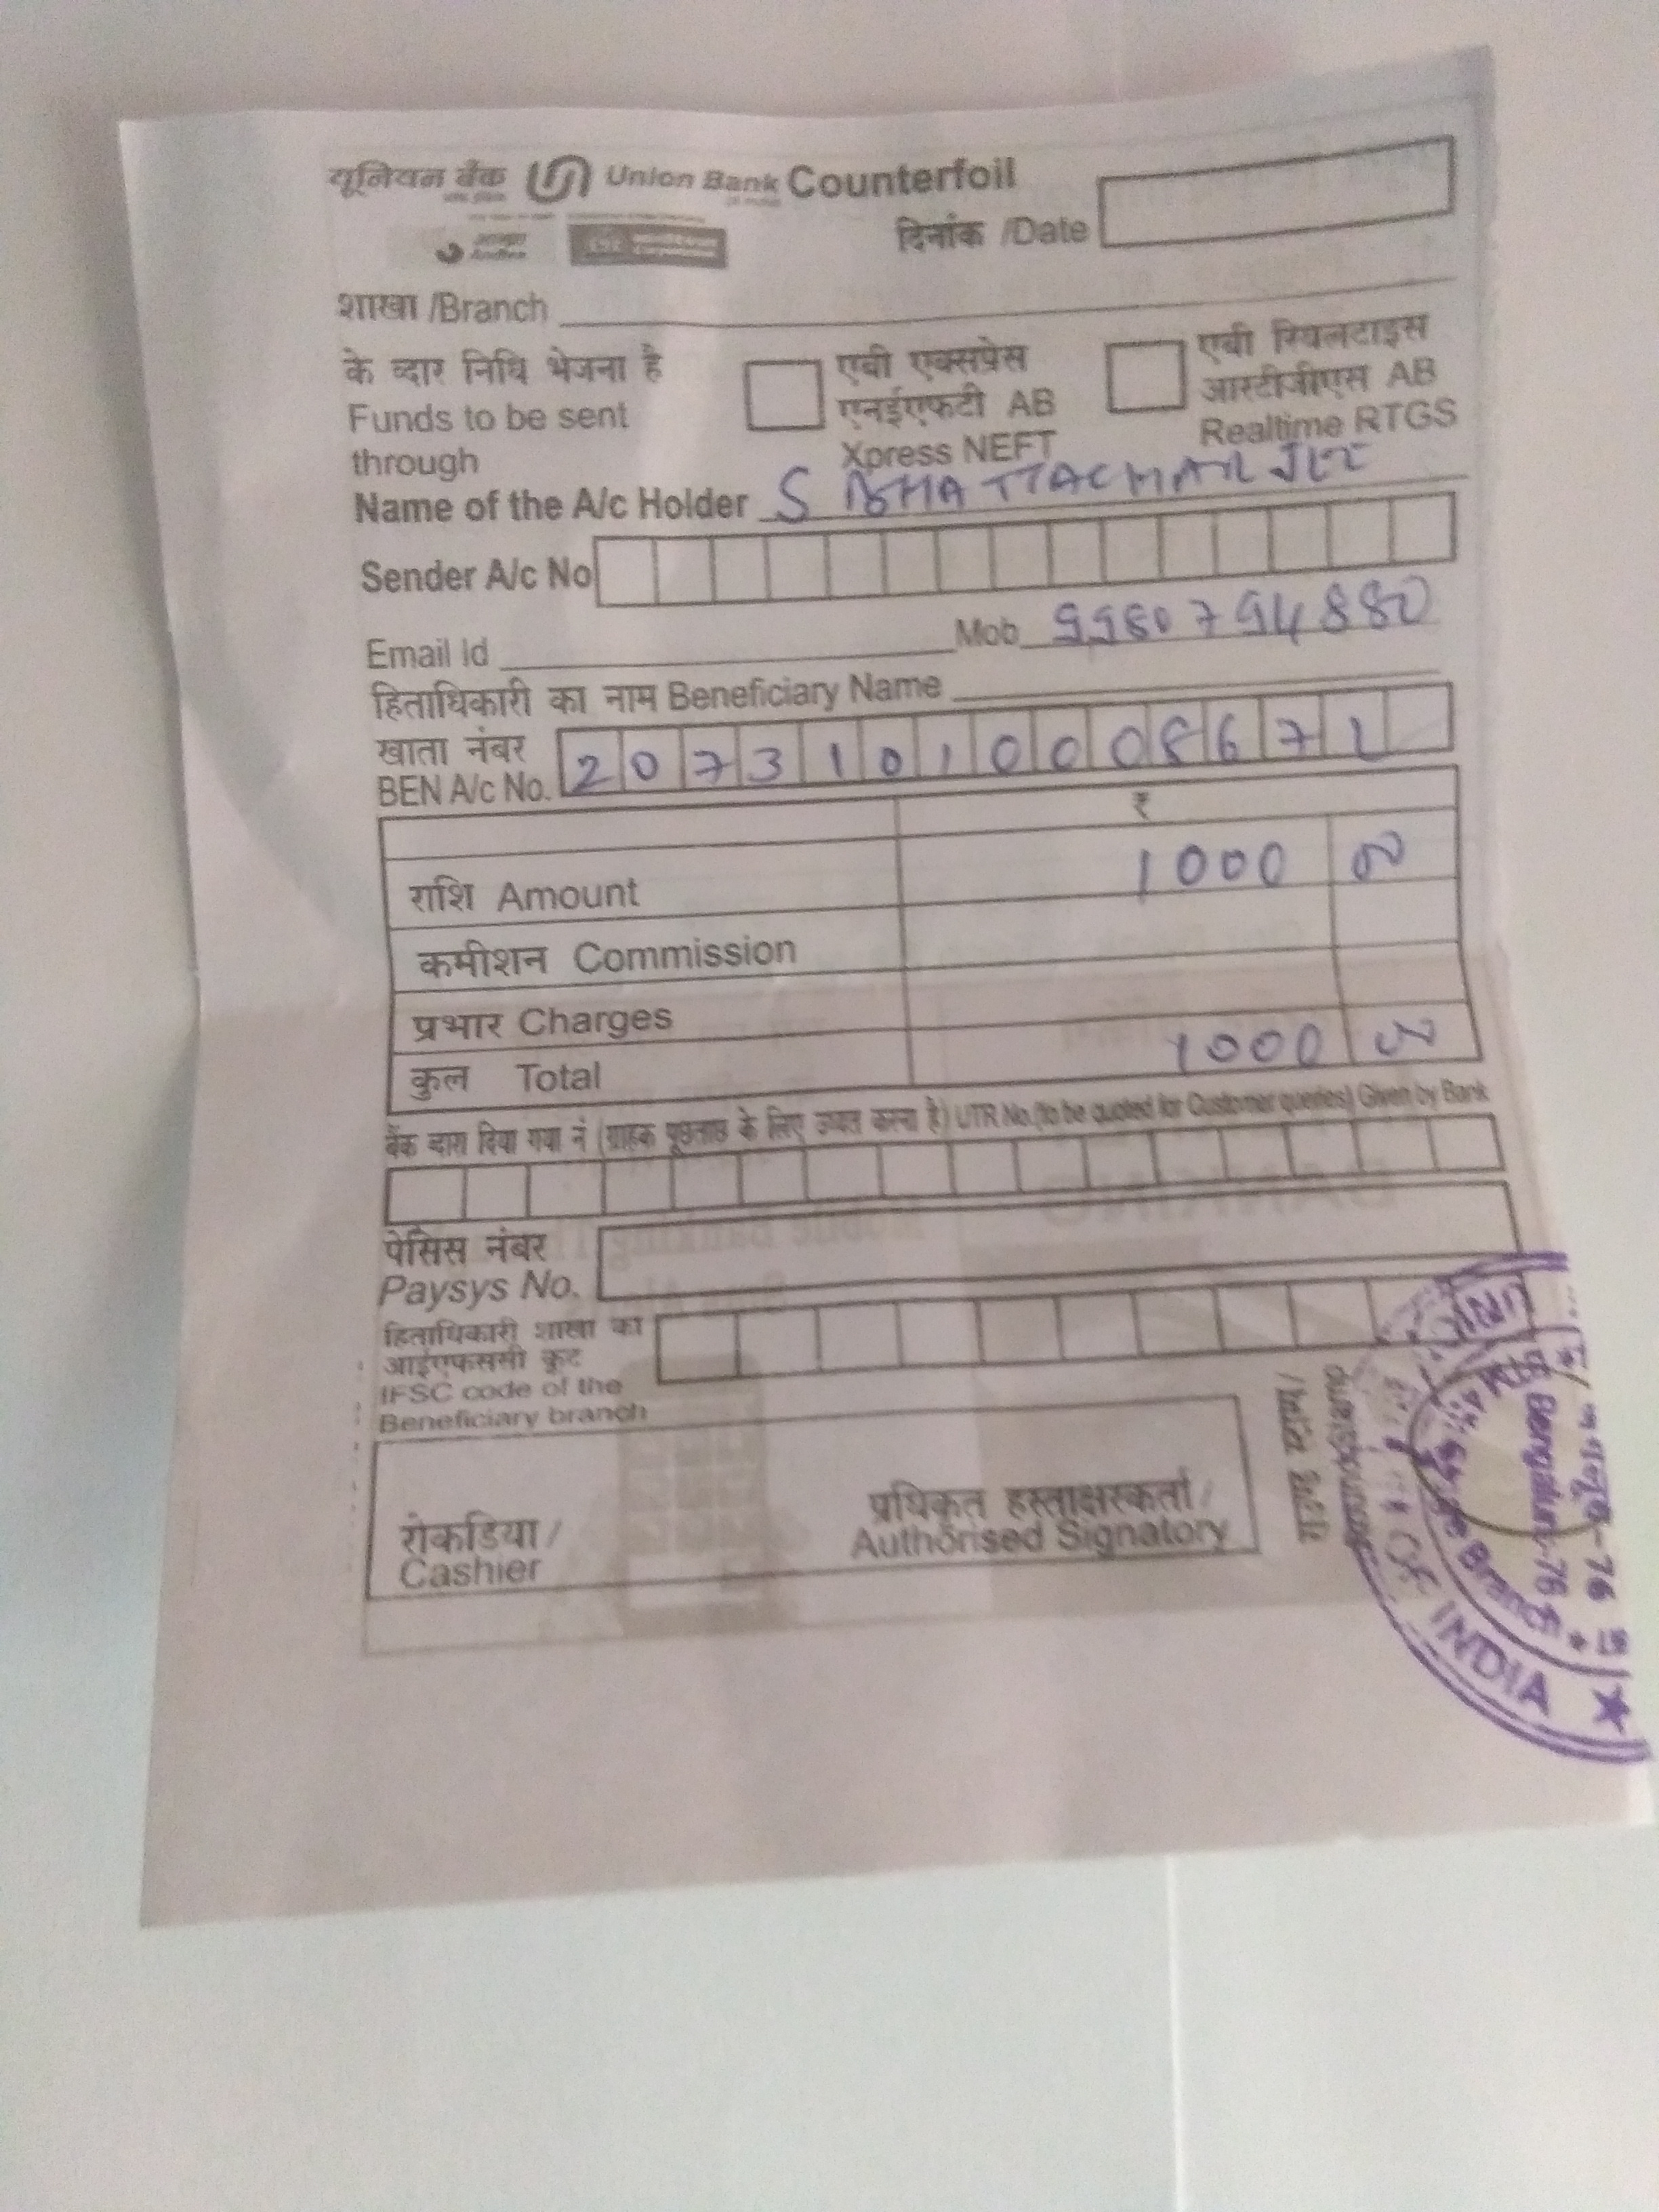 यूनियन बैंक Union Bank Counterfoil
of India
Andhra
दिनांक /Date
शाखा /Branch
के व्दार निधि भेजना है
Funds to be sent
through
एबी एक्सप्रेस
एनईएफटी AB
Xpress NEFT
एबी रियलटाइस
आरटीजीएस AB
Realtime RTGS
Name of the A/c Holder S BHATTACHARJEE
Sender A/c No
Email Id Mob 9980794880
हिताधिकारी का नाम Beneficiary Name
खाता नंबर
BEN A/c No. 207310100008671
₹
राशि Amount 1000 00
कमीशन Commission
प्रभार Charges
कुल Total 1000 00
बैंक व्दारा दिया गया नं (ग्राहक पूछताछ के लिए उध्यत करना है) UTR No.(to be quoted for Customer queries) Given by Bank
पेसिस नंबर
Paysys No.
हिताधिकारी शाखा का
आईएफससी कूट
IFSC code of the
Beneficiary branch
रोकडिया /
Cashier
प्रधिकृत हस्ताक्षरकर्ता /
Authorised Signatory
OF INDIA
Branch